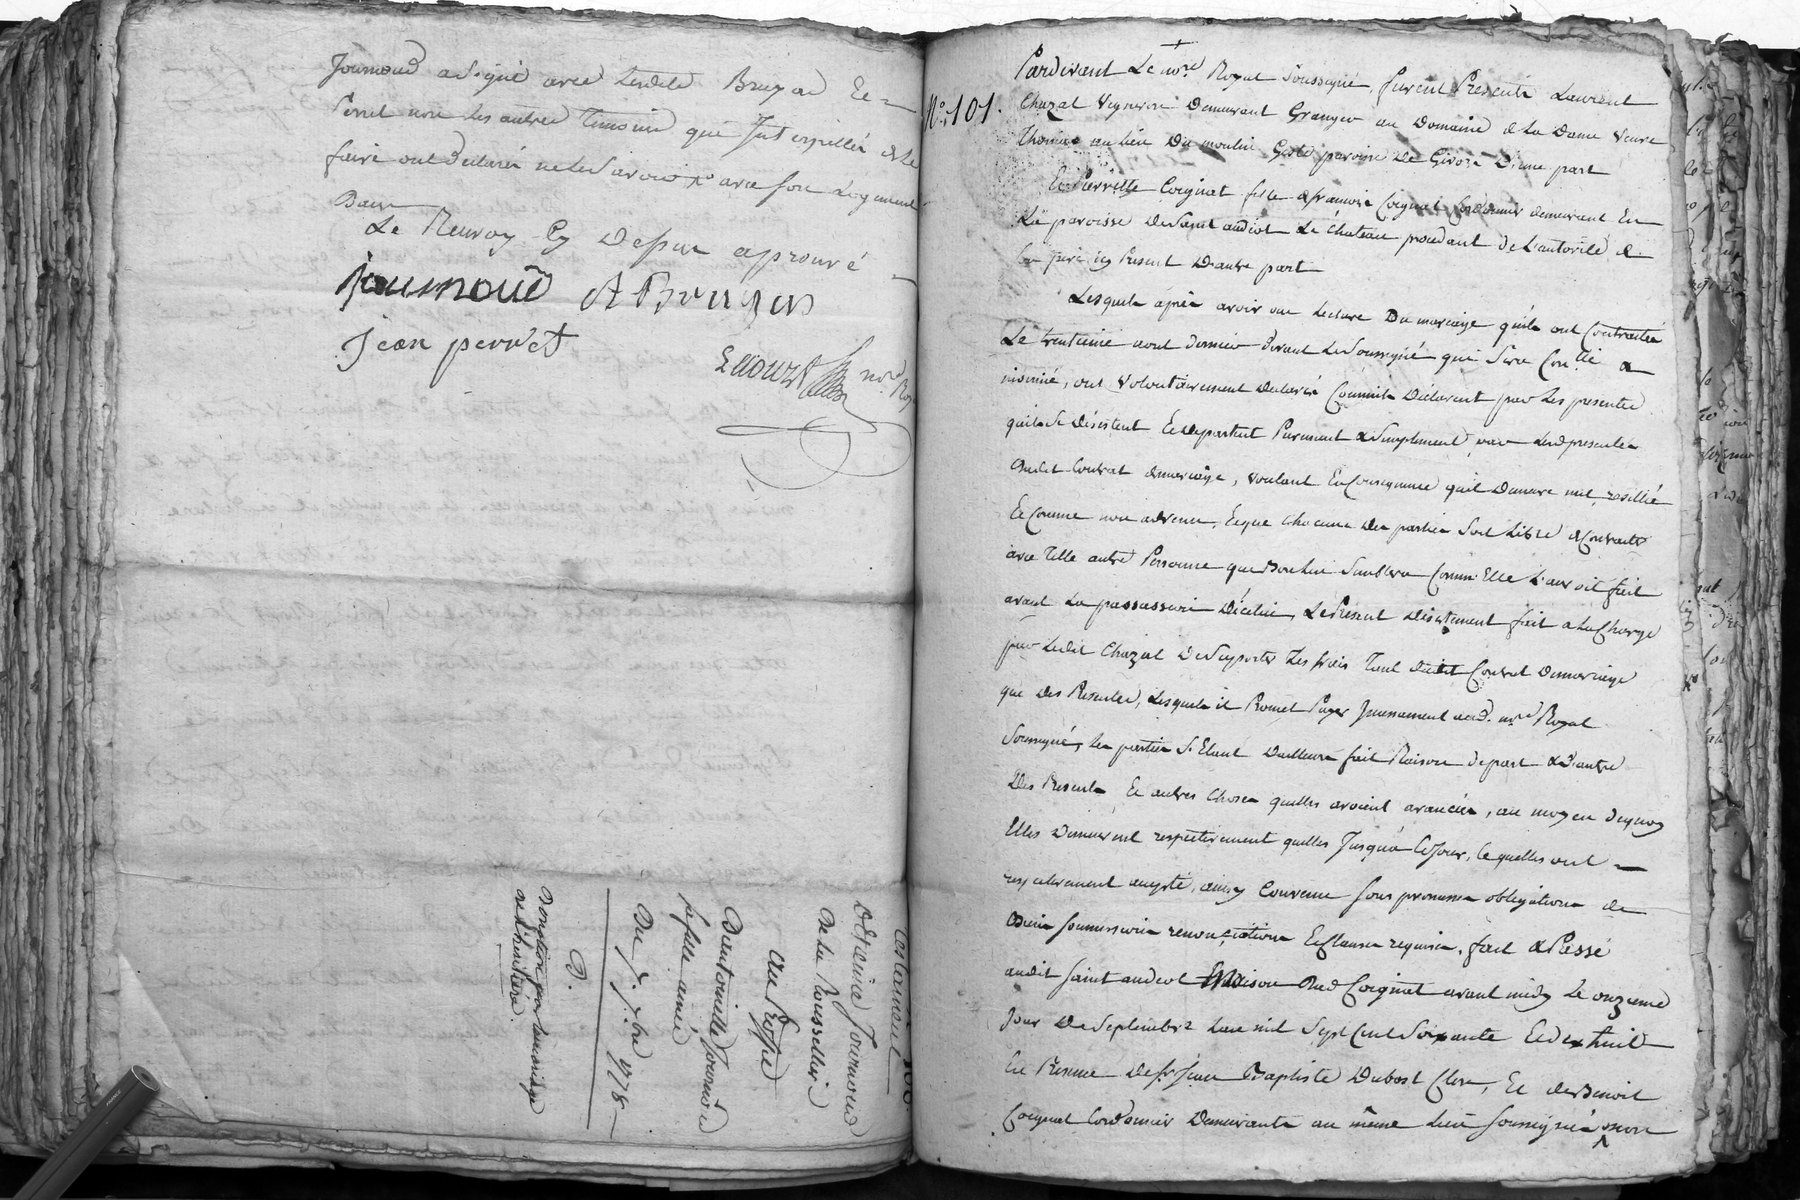 Journoud a signé avec lesdits Bruyas Et
Perret non les autres temoins qui Interpellés de le
faire ont declaré ne le scavoir avec son
Le Renvoy Cy Dessus aprouvé
journoud A Bruyas
jean perret
nore Roy
Testament
D'Etienne Journoud
De la Rousselliere
au Proffit
D'antoinette Journoud
sa fille ainée
Du 7. 7bre 1778
D.
Donation par
No. 101.
Pardevant Le nore Royal Soussigné, furent Presents Laurent
Chazal Vigneron Demeurant Granger au Domaine de La Dame veuve
Thomas au lieu Du moulin paroisse De Givors D'une part
Et Pierrette Coignat fille de francois Coignat Cordonnier demeurant En
La paroisse De Saint andéol Le Chateau procedant de L'autorité de
son pere icy Present D'autre part
Lesquels après avoir eu Lecture Du mariage qu'ils ont Contracté
Le trentieme aout dernier devant Le Soussigné qui sera Conllé a
insinué, ont volontairement declaré Comme ils Déclarent par Les presentes
qu'ils se Désistent Et departent Purement & Simplement, par Lesd presentes
Dudit Contrat de mariage, voulant En Consequence qu'il Demeure nul resillié
Et Comme non advenu, Et que Chacune Des parties Soit Libre de Contracter
avec telle autre Personne que Bon lui Semblera Comm'Elle L'auroit fait
avant La passassion D'icelui, Le Present Désistement fait a La Charge
par Ledit Chazal De Suporter Les frais tant dudit Contrat De mariage
que Des Presentes, Lesquels il Promet Payer Incessament aud. nore Royal
Soussigné, Les parties S'Etant D'ailleurs fait Raison de part & D'autre
Des Presents Et autres Choses quelles avoient avancées, au moyen de quoy
Elles Demeurent respectivement quittes Jusqu'à Ce Jour, Ce quelles ont
respectivement accepté, ainsy Convenu sous promesses obligations de
Biens soumissions renonciations Et Clauses requises, fait & Passé
audit Saint andeol Maison Dud Coignat avant midy Le onzieme
Jour De Septembre L'an mil Sept Cent Soixante Et dix huit
En Presence De sr Jean Baptiste Dubost Clerc, Et de Benoit
Coignat Cordonnier Demeurants au même Lieu soussignés